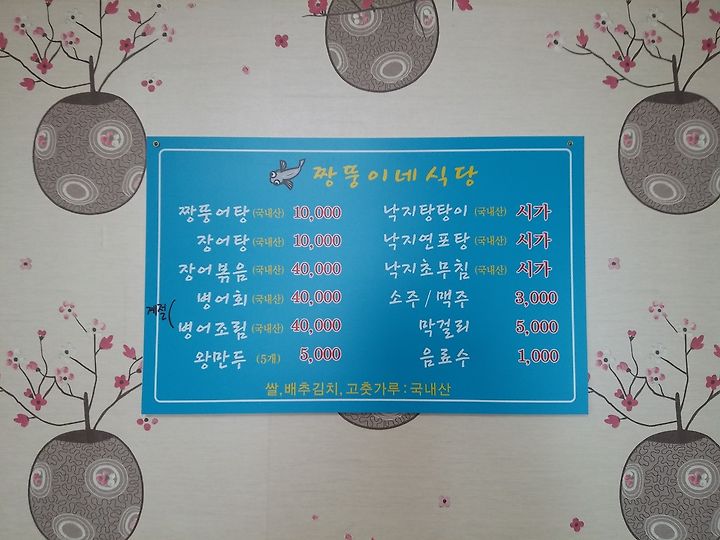 짱뚱이네식당
짱뚱어탕 (국내산) 10,000
장어탕 (국내산) 10,000
장어볶음 (국내산) 40,000
병어회 (국내산) 40,000
계절
병어조림 (국내산) 40,000
왕만두 (5개) 5,000
낙지탕탕이 (국내산) 시가
낙지연포탕 (국내산) 시가
낙지초무침 (국내산) 시가
소주 / 맥주 3,000
막걸리 5,000
음료수 1,000
쌀, 배추김치, 고춧가루 : 국내산